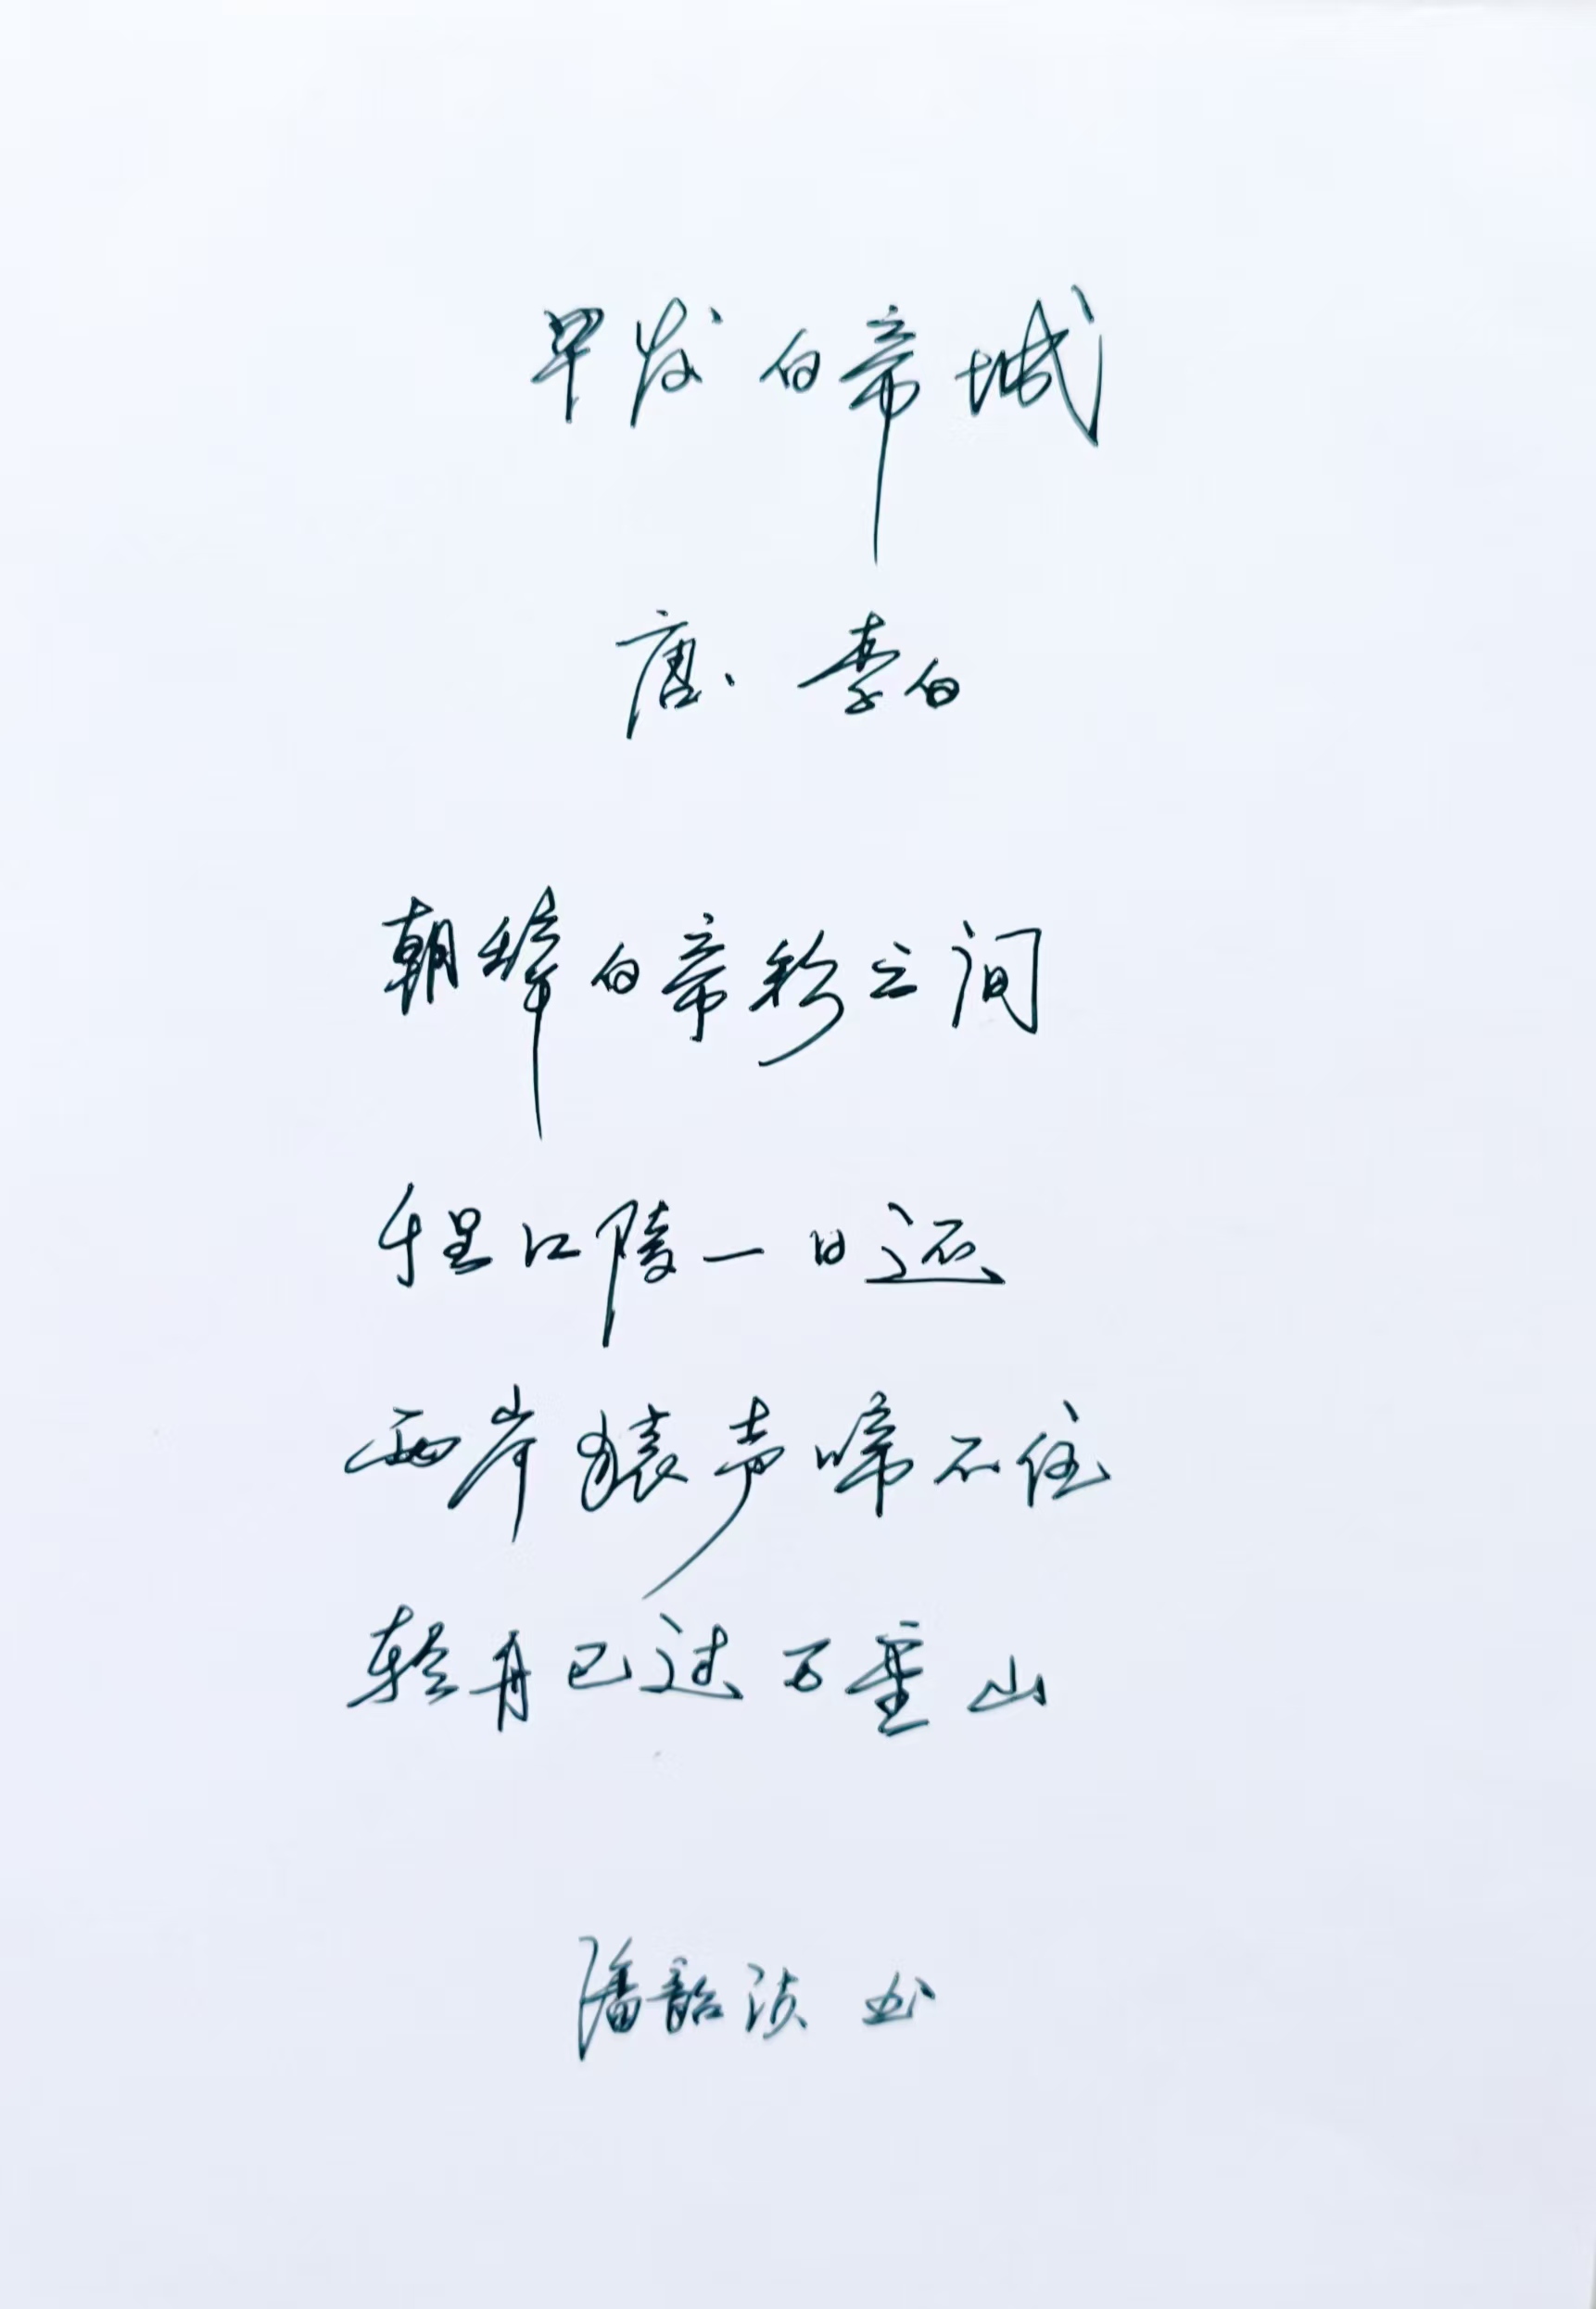 早发白帝城
唐、李白
朝辞白帝彩云间
千里江陵一日还
两岸猿声啼不住
轻舟已过万重山
潘韶 书